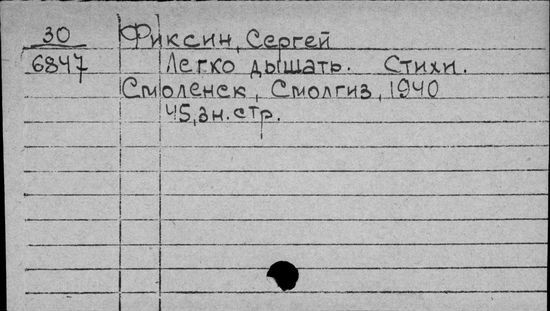 30 Фиксин, Сергей
6847 Легко дышать. Стихи.
Смоленск, Смолгиз, 1940
45, зн. стр.